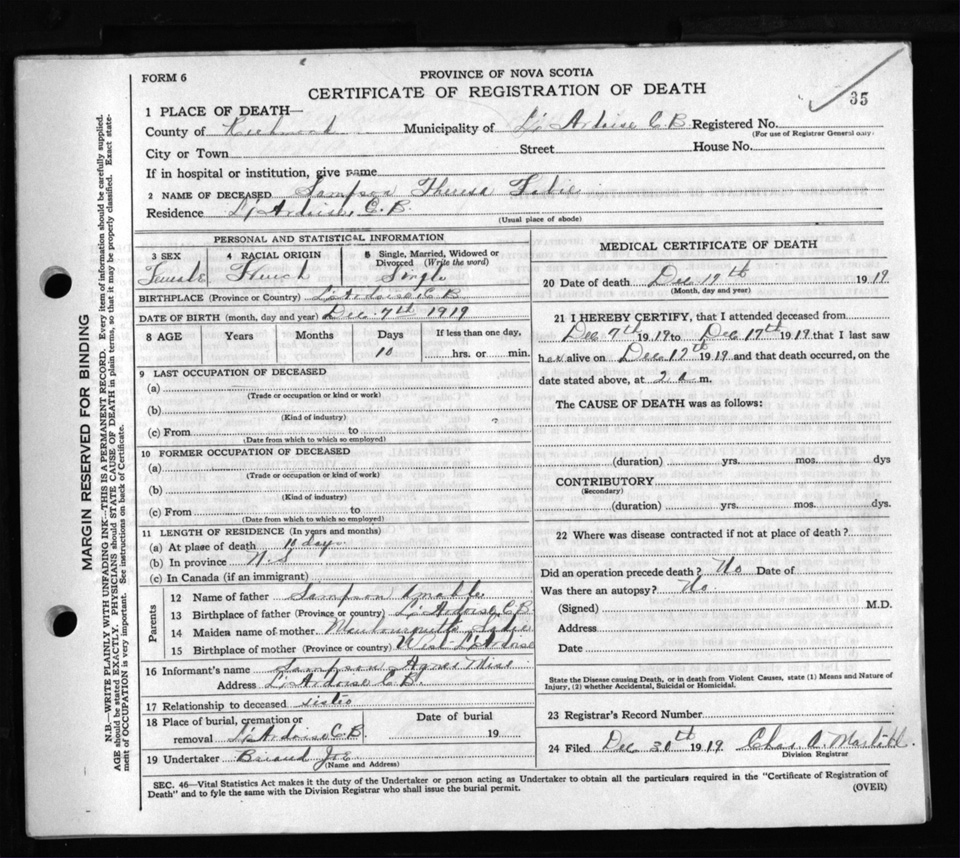 35
FORM 6
PROVINCE OF NOVA SCOTIA
CERTIFICATE OF REGISTRATION OF DEATH
1 PLACE OF DEATH—
County of Richmond Municipality of L'Ardoise C.B. Registered No.
(For use of Registrar General only.)
City or Town Street House No.
If in hospital or institution, give name
2 NAME OF DECEASED Sampson Theresa
Residence L'Ardoise, C.B.
(Usual place of abode)
PERSONAL AND STATISTICAL INFORMATION
3 SEX 4 RACIAL ORIGIN 5 Single, Married, Widowed or Divorced (Write the word)
Female French Single
BIRTHPLACE (Province or Country) L'Ardoise C B
DATE OF BIRTH (month, day and year) Dec. 7th 1919
8 AGE Years Months Days If less than one day,
10 hrs. or min.
9 LAST OCCUPATION OF DECEASED
(a)
(Trade or occupation or kind or work)
(b)
(Kind of industry)
(c) From to
(Date from which to which so employed)
10 FORMER OCCUPATION OF DECEASED
(a)
(Trade or occupation or kind of work)
(b)
(Kind of industry)
(c) From to
(Date from which to which so employed)
11 LENGTH OF RESIDENCE (In years and months)
(a) At place of death 10 days
(b) In province N.S
(c) In Canada (if an immigrant)
Parents
12 Name of father Sampson
13 Birthplace of father (Province or country) L'Ardoise, C B
14 Maiden name of mother Sadie
15 Birthplace of mother (Province or country) West L'Ardoise
16 Informant's name Sampson Agnes Miss
Address L'Ardoise C B.
17 Relationship to deceased sister
18 Place of burial, cremation or Date of burial
removal L'Ardoise C.B. 19
19 Undertaker Briand Joe
(Name and Address)
MEDICAL CERTIFICATE OF DEATH
20 Date of death Dec 17th 1919
(Month, day and year)
21 I HEREBY CERTIFY, that I attended deceased from
Dec 7th 1919 to Dec 17th 1919 that I last saw
her alive on Dec 17th 1919 and that death occurred, on the
date stated above, at 2 a m.
The CAUSE OF DEATH was as follows:
(duration) yrs. mos. dys
CONTRIBUTORY
(Secondary)
(duration) yrs. mos. dys.
22 Where was disease contracted if not at place of death?
Did an operation precede death? No Date of
Was there an autopsy? No
(Signed) M.D.
Address
Date
State the Disease causing Death, or in death from Violent Causes, state (1) Means and Nature of
Injury, (2) whether Accidental, Suicidal or Homicidal.
23 Registrar's Record Number
24 Filed Dec 30th 1919 Chas. A.
Division Registrar
SEC. 46—Vital Statistics Act makes it the duty of the Undertaker or person acting as Undertaker to obtain all the particulars required in the "Certificate of Registration of
Death" and to fyle the same with the Division Registrar who shall issue the burial permit.
(OVER)
MARGIN RESERVED FOR BINDING
N.B.—WRITE PLAINLY WITH UNFADING INK—THIS IS A PERMANENT RECORD. Every item of information should be carefully supplied.
AGE should be stated EXACTLY. PHYSICIANS should STATE CAUSE OF DEATH in plain terms, so that it may be properly classified. Exact statement of OCCUPATION is very important. See instructions on back of Certificate.